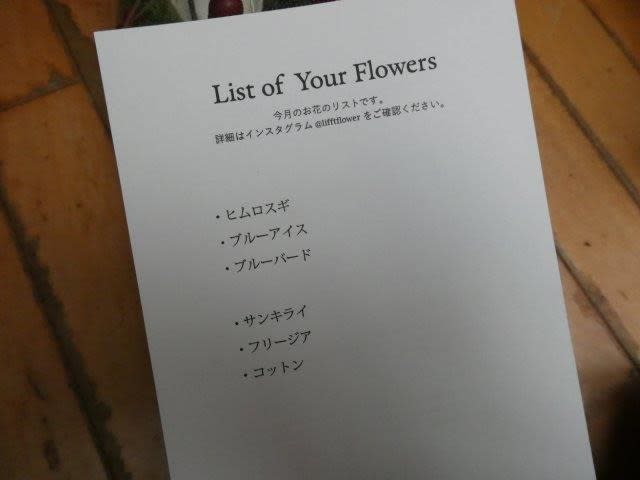 List of Your Flowers
今月のお花のリストです。
詳細はインスタグラム @lifftflower をご確認ください。
・ヒムロスギ
・ブルーアイス
・ブルーバード
・サンキライ
・フリージア
・コットン